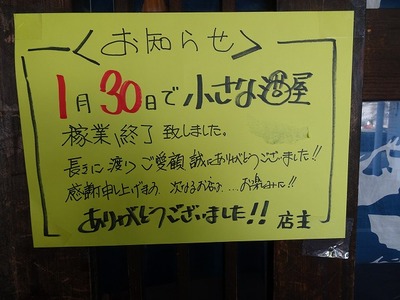 ＜お知らせ＞
1月30日で小さな酒屋
稼業終了致しました。
長きに渡りご愛顧誠にありがとうございました!!
感謝申し上げます 次なるお店は…お楽しみに!!
ありがとうございました!! 店主